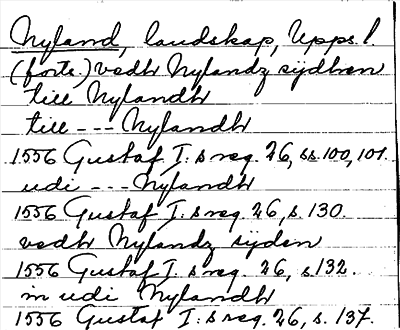 Nyland, landskap, Upps. l.
(forts.) vedh Nylandz sijdhen
till Nylandh
till --- Nylandh
1556 Gustaf I:s reg. 26, ss. 100, 101.
udi --- Nylandh
1556 Gustaf I:s reg. 26, s. 130.
vedh Nylandz sijden
1556 Gustaf I:s reg. 26, s. 132.
in udi Nylandh
1556 Gustaf I:s reg. 26, s. 137.